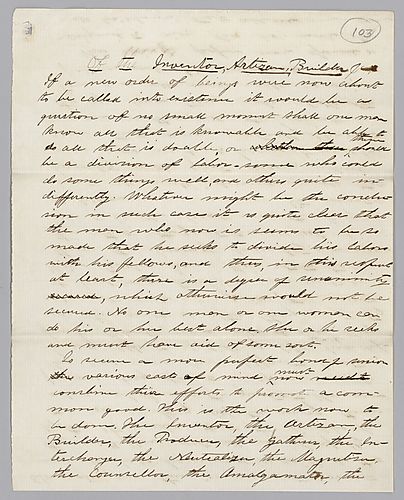 103
Of the Inventor, Artizan, Builder &c
If a new order of beings were now about
to be called into existence it would be a
question of no small moment shall one man
know all that is knowable and be able to
do all that is doable, or there should
be a division of labor - some who could
do some things well, and others quite in-
differently. Whatever might be the conclu-
sion in such case it is quite clear that
the man who now is seems to be so
made that he seeks to divide his labors
with his fellows, and thus, in this respect
at least, there is a degree of unanimity
secured, which otherwise would not be
secured. No one man or one woman can
do his or her best alone. She or he seeks
and must have aid of some sort.
To secure a more perfect home
the various casts of mind must now
combine their efforts to promote a com-
mon good. This is the work now to
be done. The Inventor, the Artizan, the
Builder, the Producer, the Gatherer, the In-
terchanger, the Neutralizer the Magnetizer
the Counsellor, the Amalgamator, the